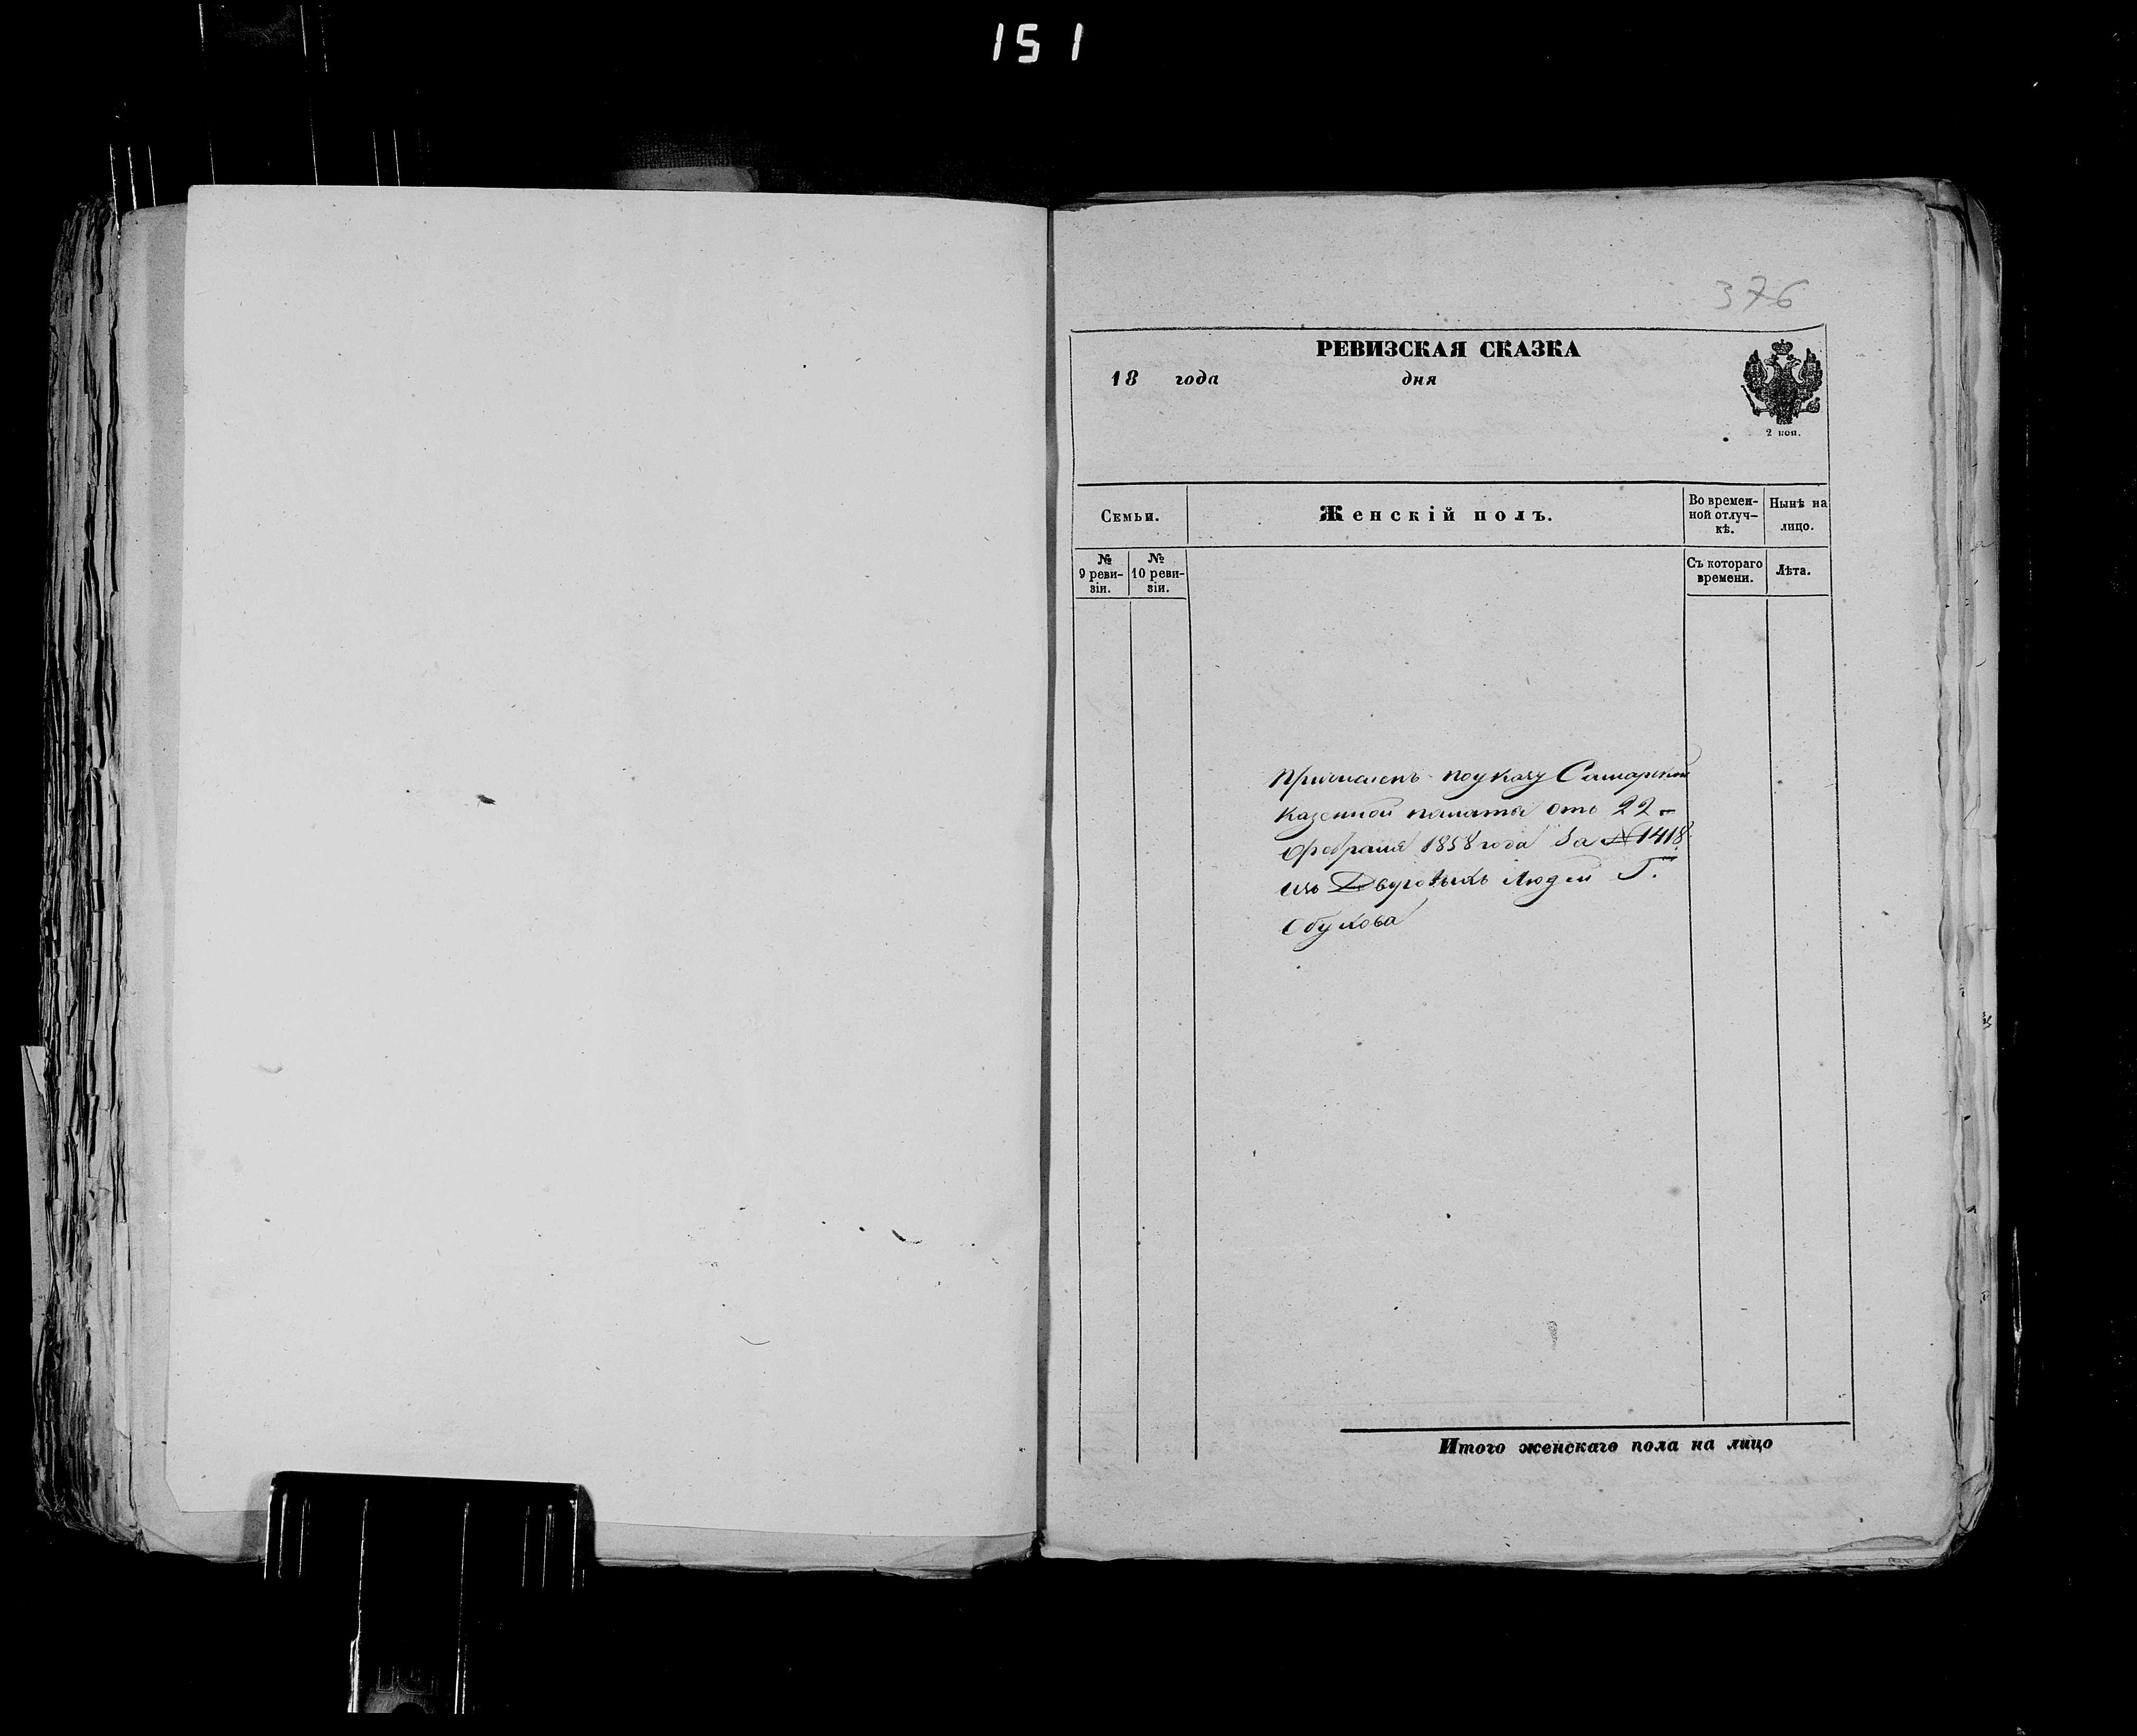 151
376
РЕВИЗСКАЯ СКАЗКА
18 года дня
2 коп.
Семьи.
Женскій полъ.
Во времен-
ной отлуч-
кѣ.
Нынѣ на
лицо.
№
9 реви-
зіи.
№
10 реви-
зіи.
Съ котораго
времени.
Лѣта.
Причисленъ по указу Самарской
Казенной палаты отъ 22-
Февраля 1858 года За № 1418
изъ Дворовыхъ Людей Г.
Обухова
Итого женскаго пола на лицо